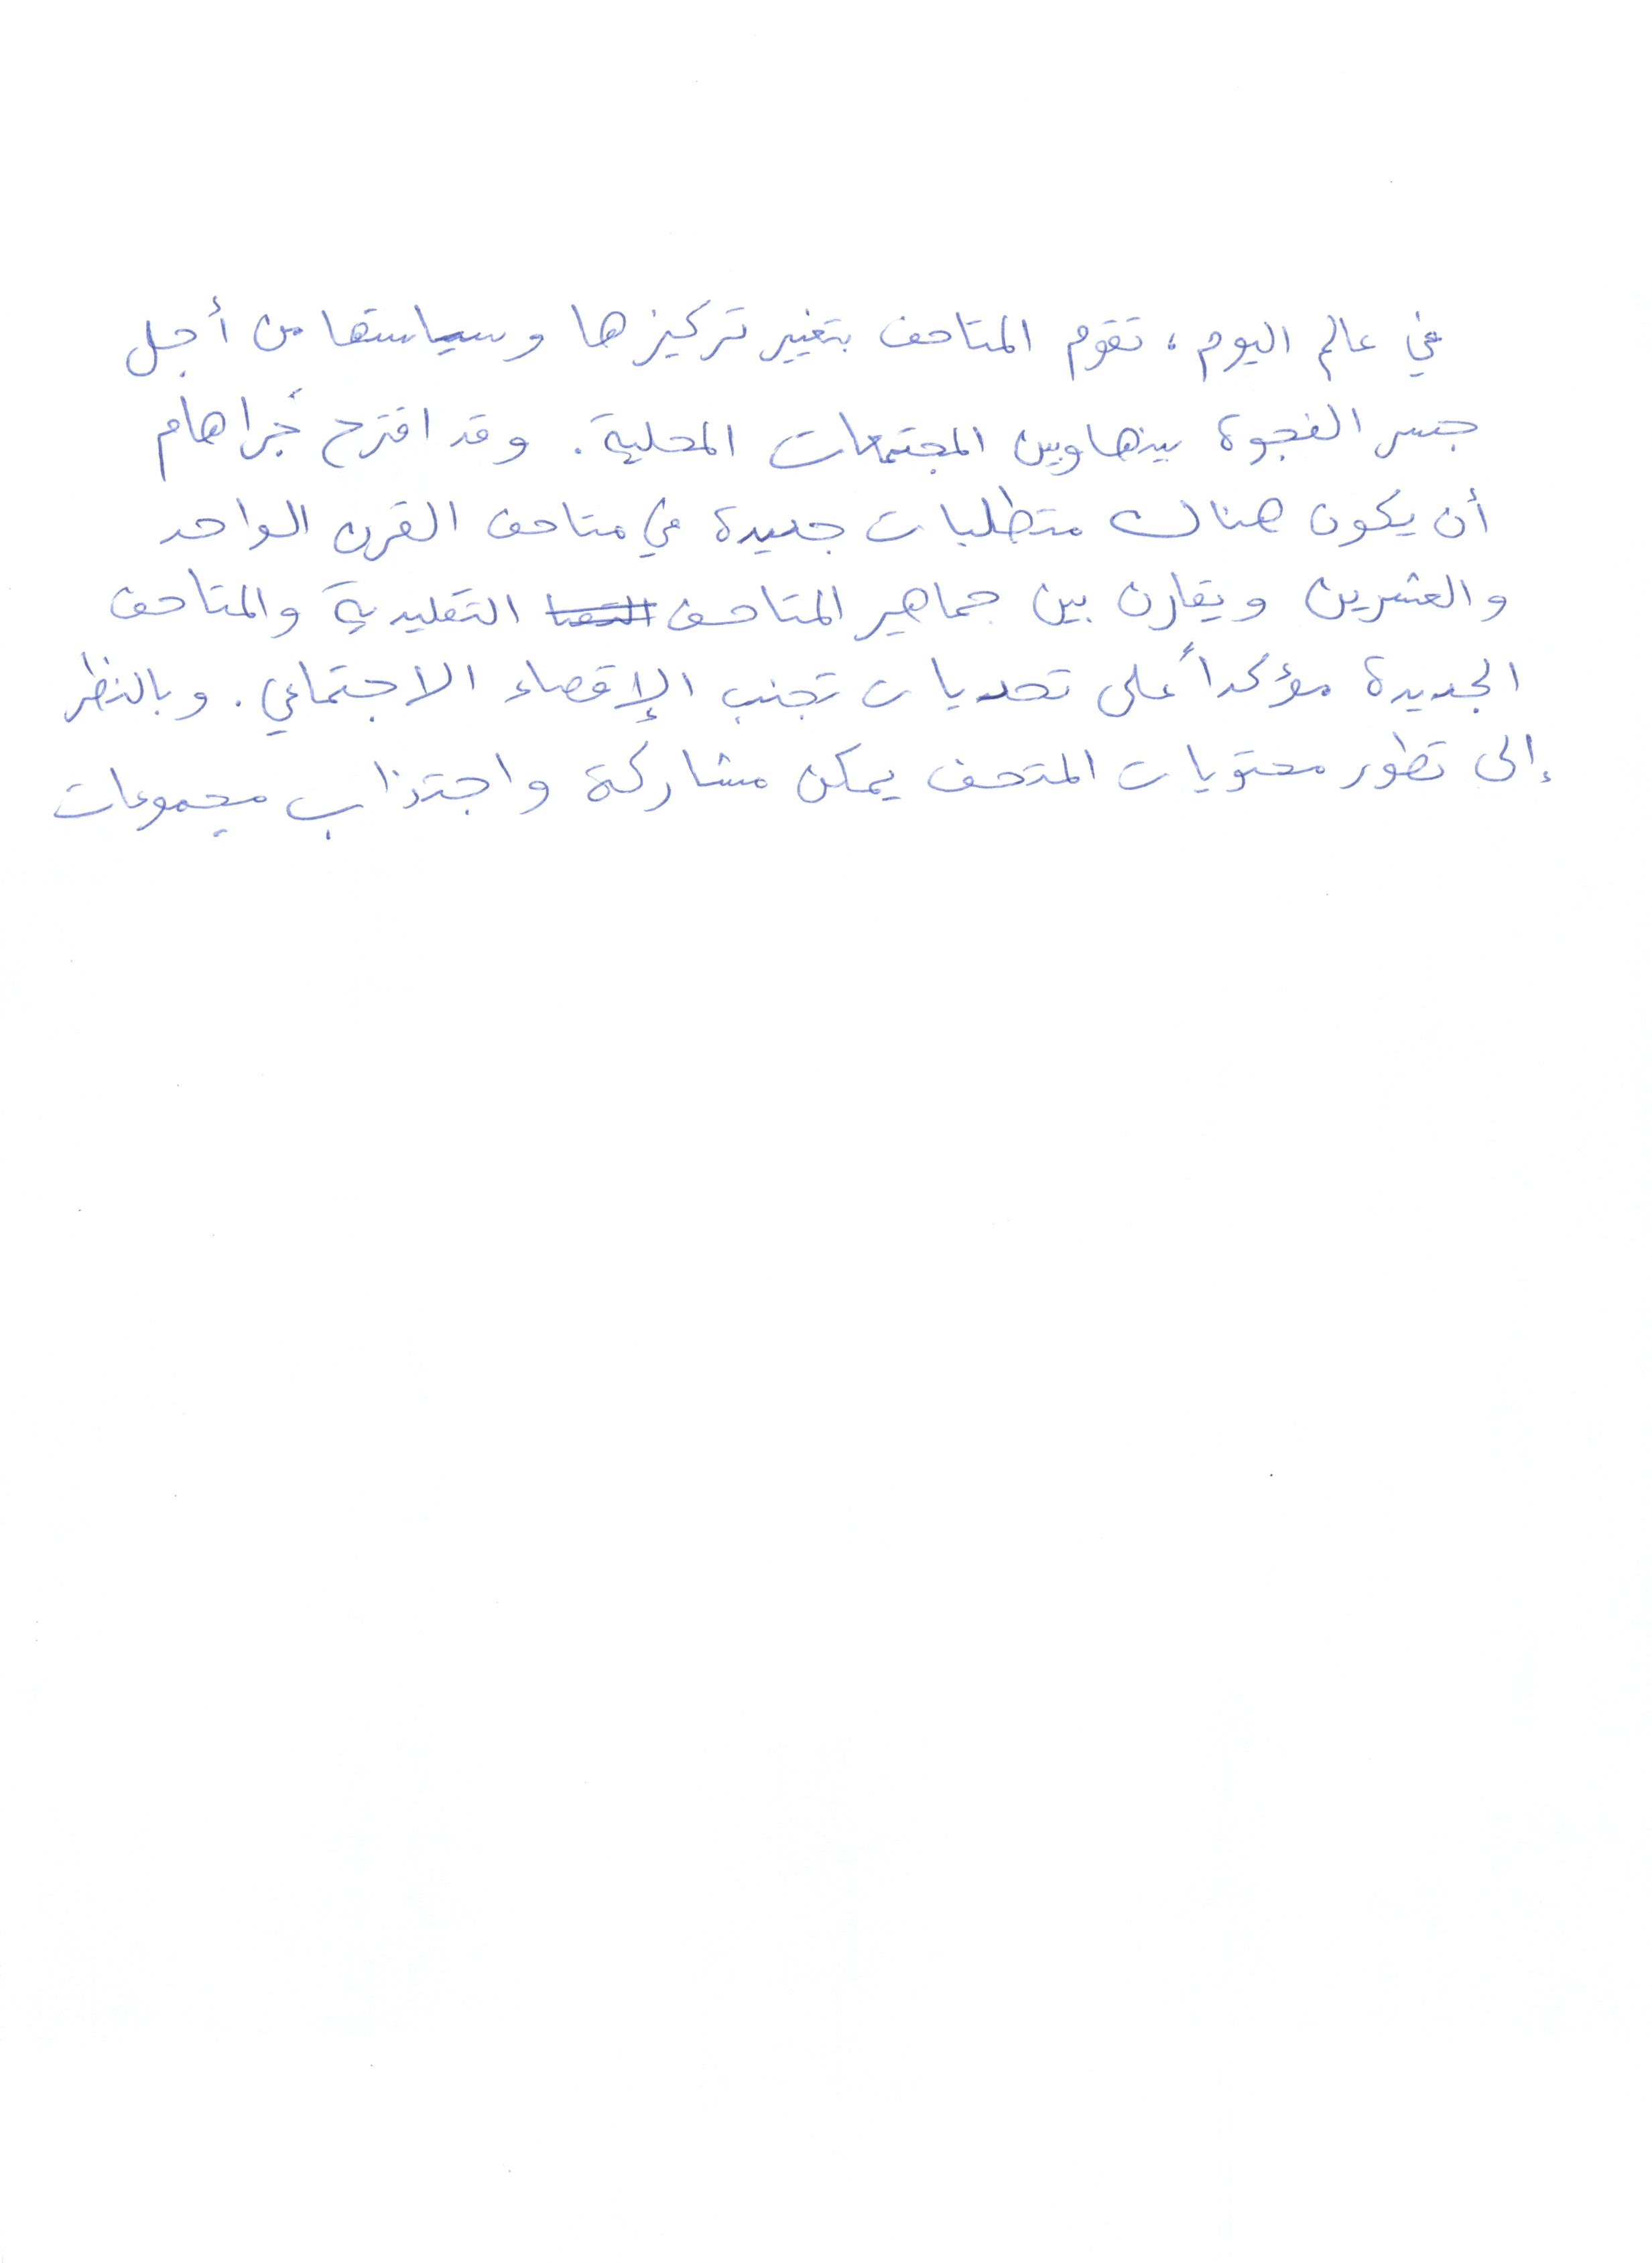 في عالم اليوم، تقوم المتاحف بتغيير تركيزها وسياستها من أجل
جسر الفجوة بينها وبين المجتمعات المحلية. وقد اقترح جراهام
أن يكون هناك متطلبات جديدة في متاحف القرن الواحد
والعشرين ويقارن بين جماهير المتاحف التقليدية والمتاحف
الجديدة مؤكداً على تحديات تجنب الإقصاء الاجتماعي. وبالنظر
إلى تطور محتويات المتحف يمكن مشاركة واجتذاب مجموعات